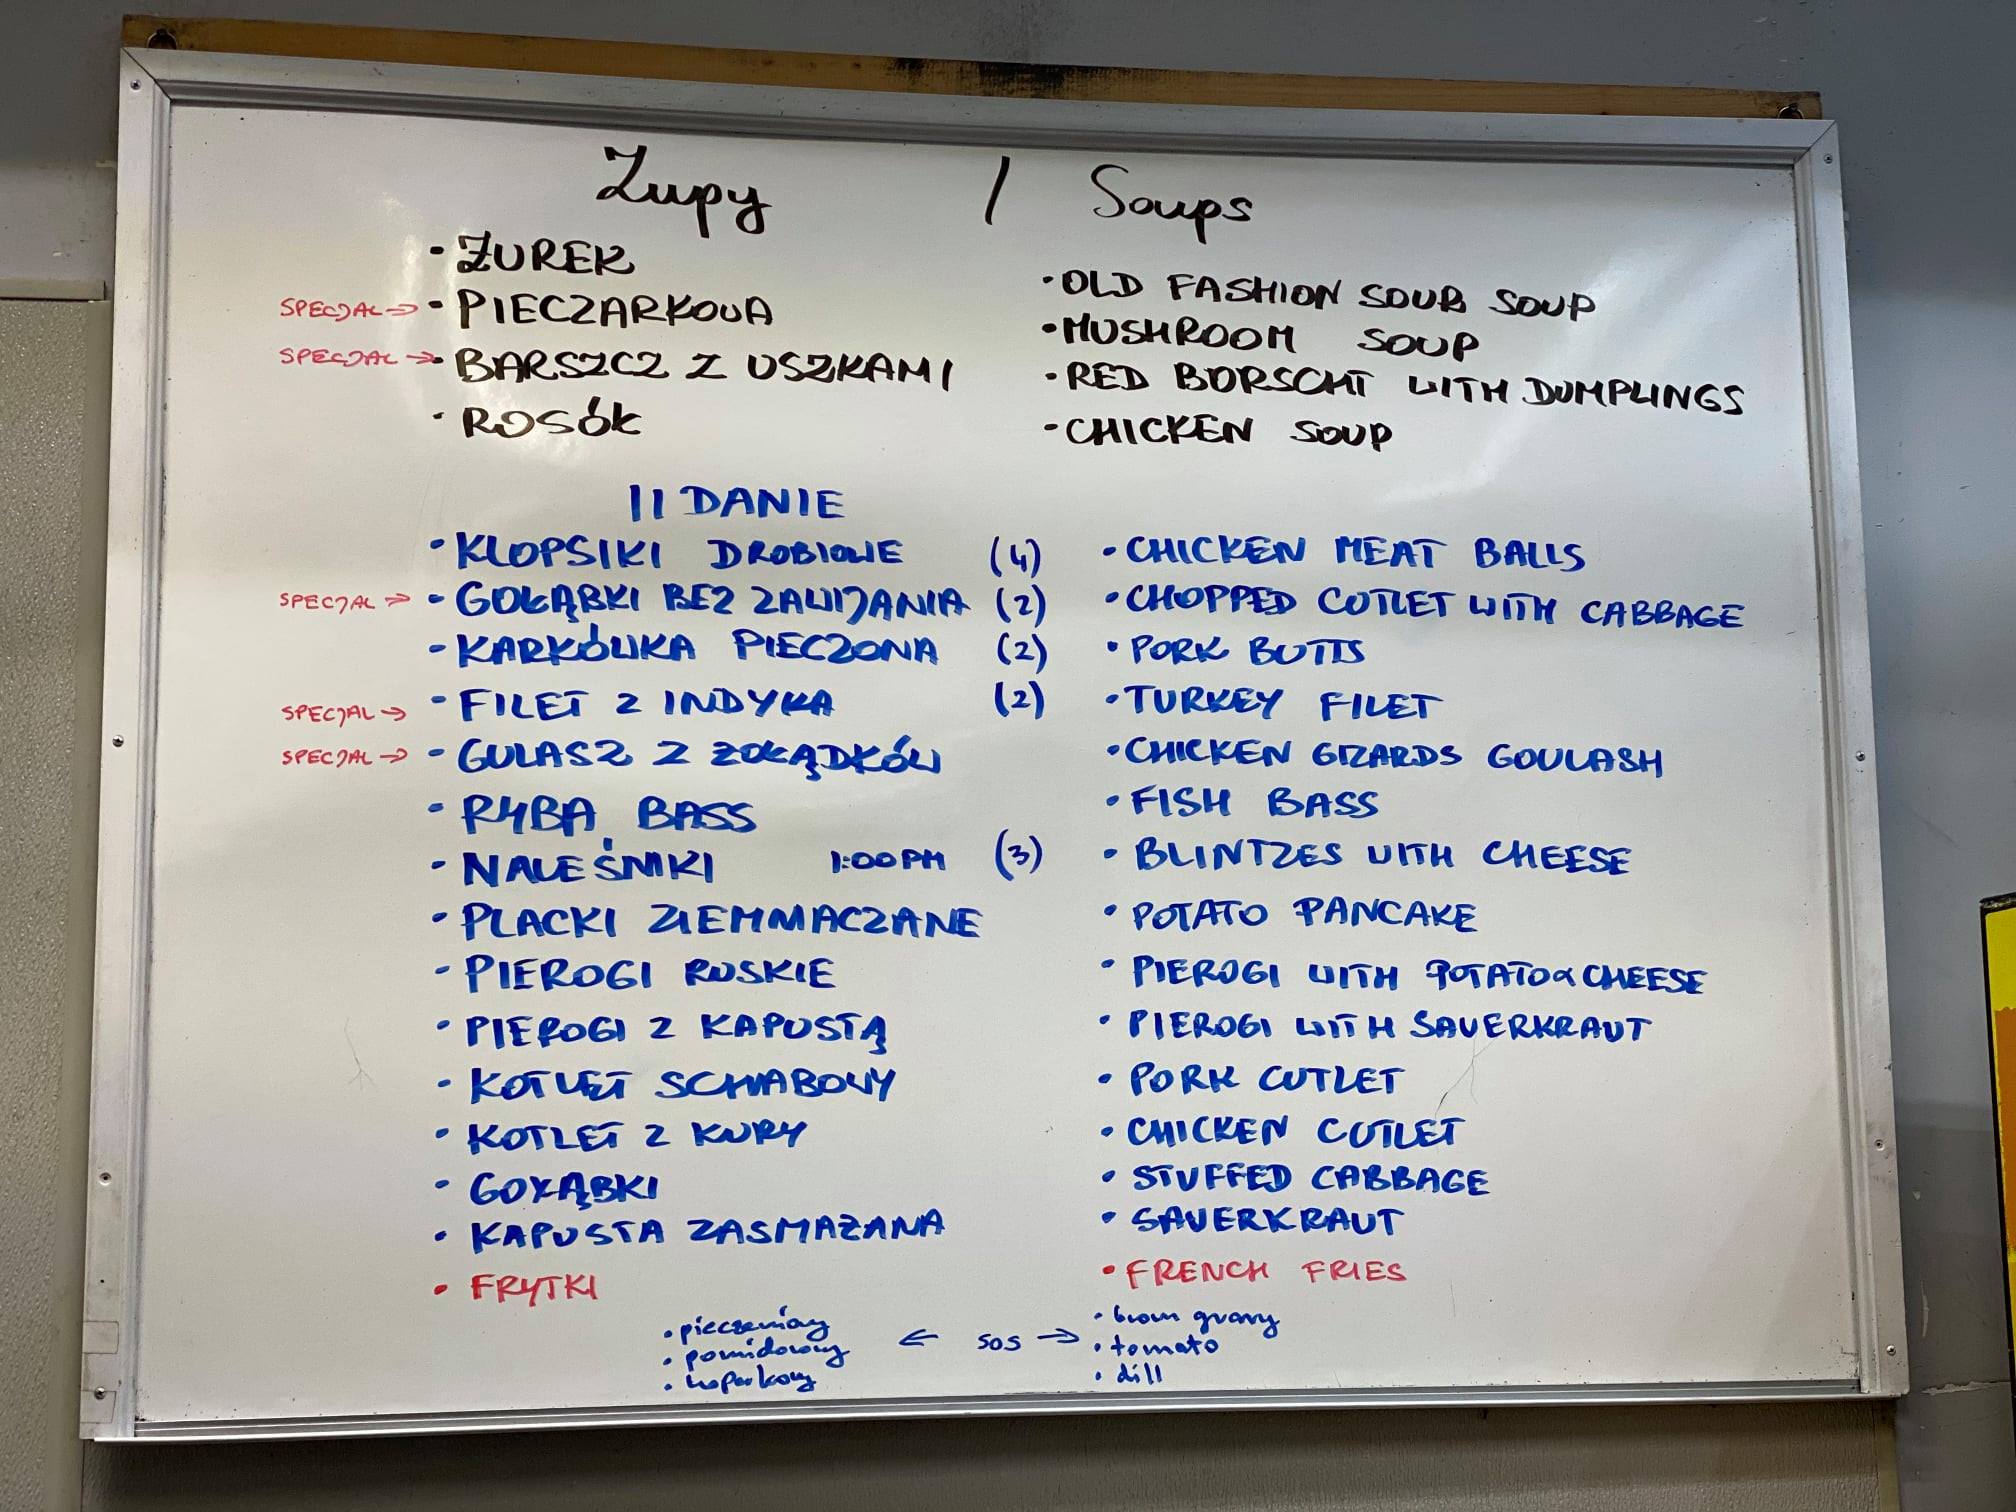 Zupy / Soups
• ŻUREK • OLD FASHION SOUR SOUP
SPECJAL → • PIECZARKOWA • MUSHROOM SOUP
SPECJAL → • BARSZCZ Z USZKAMI • RED BORSCHT WITH DUMPLINGS
• ROSÓŁ • CHICKEN SOUP
II DANIE
• KLOPSIKI DROBIOWE (4) • CHICKEN MEAT BALLS
SPECJAL → • GOŁĄBKI BEZ ZAWIJANIA (2) • CHOPPED CUTLET WITH CABBAGE
• KARKÓWKA PIECZONA (2) • PORK BUTTS
SPECJAL → • FILET Z INDYKA (2) • TURKEY FILET
SPECJAL → • GULASZ Z ŻOŁĄDKÓW • CHICKEN GIZARDS GOULASH
• RYBA BASS • FISH BASS
• NALEŚNIKI 1:00PM (3) • BLINTZES WITH CHEESE
• PLACKI ZIEMMACZANE • POTATO PANCAKE
• PIEROGI RUSKIE • PIEROGI WITH POTATO & CHEESE
• PIEROGI Z KAPUSTĄ • PIEROGI WITH SAUERKRAUT
• KOTLET SCHABOWY • PORK CUTLET
• KOTLET Z KURY • CHICKEN CUTLET
• GOŁĄBKI • STUFFED CABBAGE
• KAPUSTA ZASMAŻANA • SAUERKRAUT
• FRYTKI • FRENCH FRIES
• pieczeniowy • brown gravy
• pomidorowy ← SOS → • tomato
• koperkowy • dill